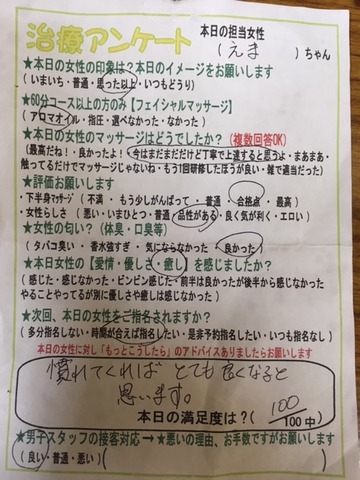 治療アンケート
本日の担当女性
(えま)ちゃん
★本日の女性の印象は?本日のイメージをお願いします
(いまいち・普通・思った以上・いつもどうり)
★60分コース以上の方のみ【フェイシャルマッサージ】
(アロマオイル・指圧・選べなかった・なかった)
★本日の女性のマッサージはどうでしたか?(複数回答OK)
(最高だね!・良かったよ!・今はまだまだだけど丁寧で上達すると思うよ・まあまあ・
触ってるだけでマッサージじゃないね・もう1回研修したほうが良い・雑で適当だった)
★評価お願いします
・下半身マッサージ(不満・もう少しがんばって・普通・合格点・最高)
・女性らしさ(悪い・いまひとつ・普通・品性がある・良く気が利く・エロい)
★女性の匂い?(体臭・口臭等)
(タバコ臭い・香水強すぎ・気にならなかった・良かった)
★本日女性の【愛情・優しさ・癒し】を感じましたか?
(感じた・感じなかった・ビンビン感じた・前半は良かったが後半から感じなかった
やることやってるが別に優しさや癒しは感じなかった)
★次回、本日の女性をご指名されますか?
(多分指名しない・時間が合えば指名したい・是非予約指名したい・いつも指名なし)
本日の女性に対し「もっとこうしたら」のアドバイスありましたらお願いします
慣れてくれば とても良くなると
思います。
本日の満足度は?(100/100中)
★男子スタッフの接客対応→★悪いの理由、お手数ですがお願いします
(良い・普通・悪い)( )